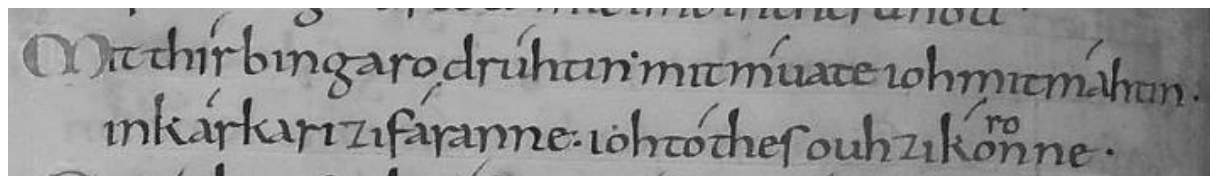 Mit thír bin garo drúhtin · mit múate ioh mit máhtin ·
in kárkari zi fáranne · ioh tóthes ouh zi kóronne ·